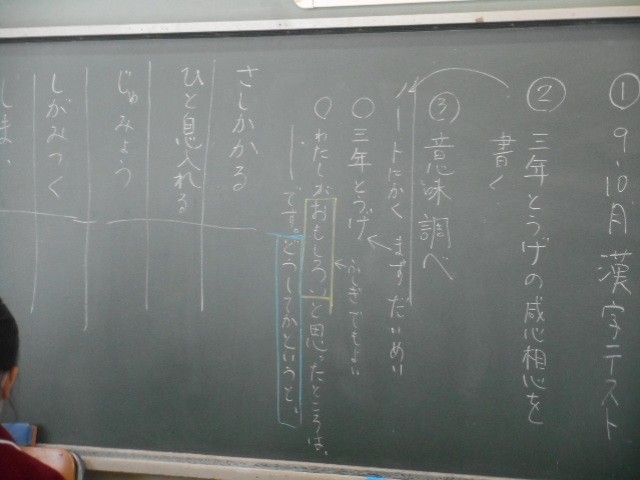 ① 9・10月 漢字テスト
② 三年とうげの感想を
書く
③ 意味調べ
ノートにかく まずだいめい
○三年とうげ
ふしぎでもよい
○わたしがおもしろいと思ったところは、
です。どうしてかというと、
さしかかる
ひと息入れる
じゅみょう
しがみつく